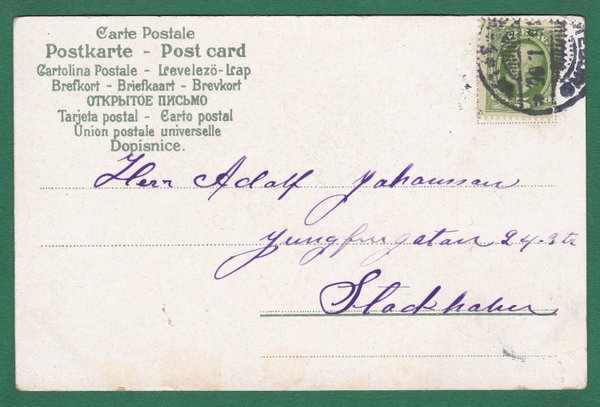 Carte Postale
Postkarte - Post card
Cartolina Postale - Levelező-Lap
Brefkort - Briefkaart - Brevkort
ОТКРЫТОЕ ПИСЬМО
Tarjeta postal - Carto postal
Union postale universelle
Dopisnice.
Herr Adolf Johansson
Jungfrugatan 24. 3 tr
Stockholm